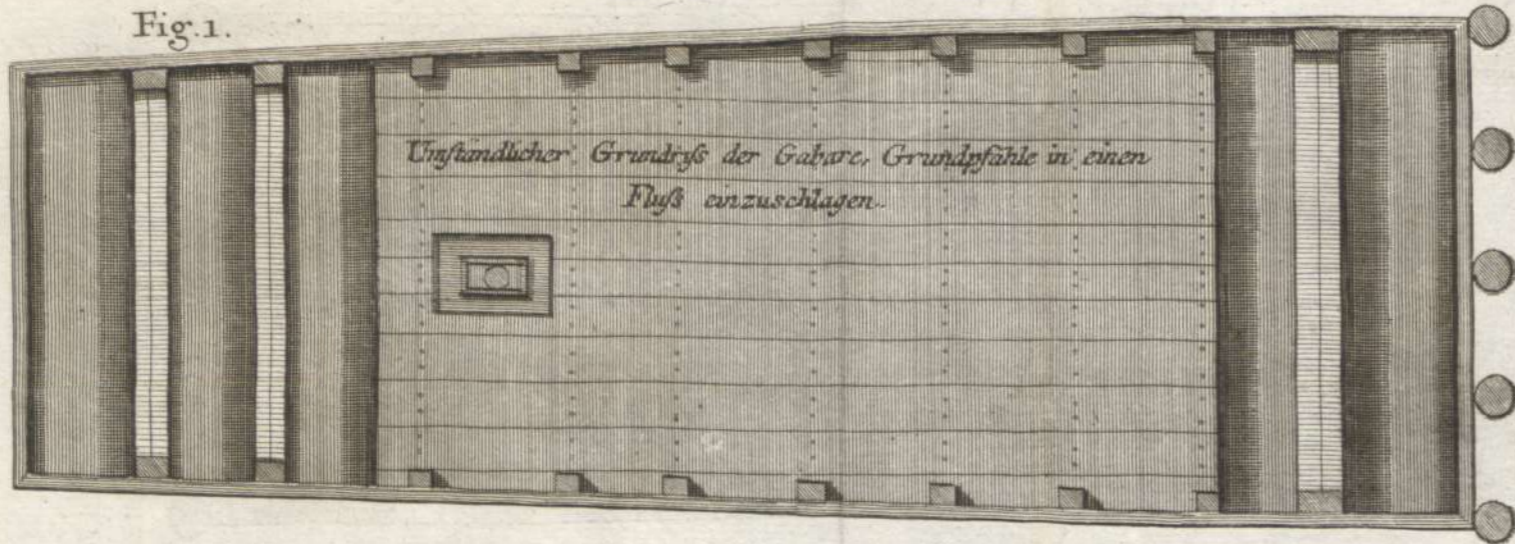 Fig. 1.
Umstandlicher Grundryß der Gabare, Grundpfähle in einen
Fluß einzuschlagen.